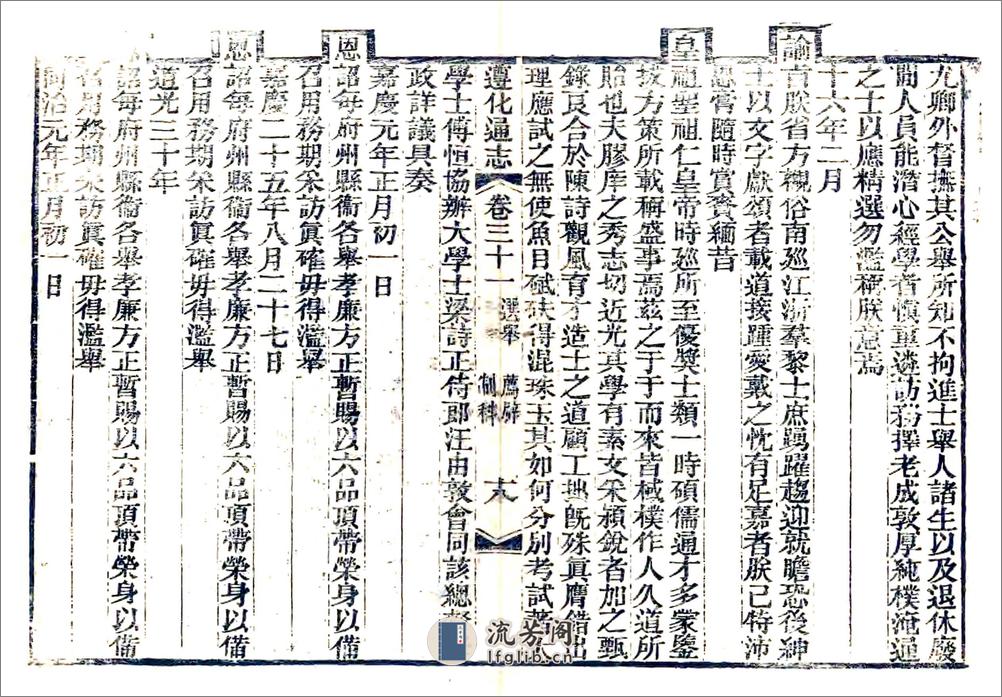 九卿外督撫其公舉所知不拘進士舉人諸生以及退休廢
閒人員能潛心經學者慎重遴訪務擇老成敦厚純樸淹通
之士以應精選勿濫稱朕意焉
十六年二月
諭旨朕省方觀俗南巡江浙羣黎士庶踴躍趨迎就瞻恐後紳
士以文字獻頌者載道接踵愛戴之忱有足嘉者朕已特沛
恩膏隨時賞賚緬昔
皇祖聖祖仁皇帝時巡所至優獎士類一時碩儒通才多蒙鑒
拔方策所載稱盛事焉茲之于于而來皆棫樸作人久道所
貽也夫膠庠之秀志切近光其學有素文采穎銳者加之甄
錄良合於陳詩觀風育才造士之道顧工拙旣殊眞贋錯出
理應試之無使魚目碔砆得混珠玉其如何分別考試著大
學士傅恒協辦大學士梁詩正侍郎汪由敦會同該總督
政詳議具奏
遵化通志 卷三十一 選舉 薦辟 制科 十八
嘉慶元年正月初一日
恩詔每府州縣衞各舉孝廉方正暫賜以六品頂帶榮身以備
召用務期采訪眞確毋得濫舉
嘉慶二十五年八月二十七日
恩詔每府州縣衞各舉孝廉方正暫賜以六品頂帶榮身以備
召用務期采訪眞確毋得濫舉
道光三十年
詔每府州縣衞各舉孝廉方正暫賜以六品頂帶榮身以備
召用務期采訪眞確毋得濫舉
同治元年正月初一日
流芳閣
lfglib.cn